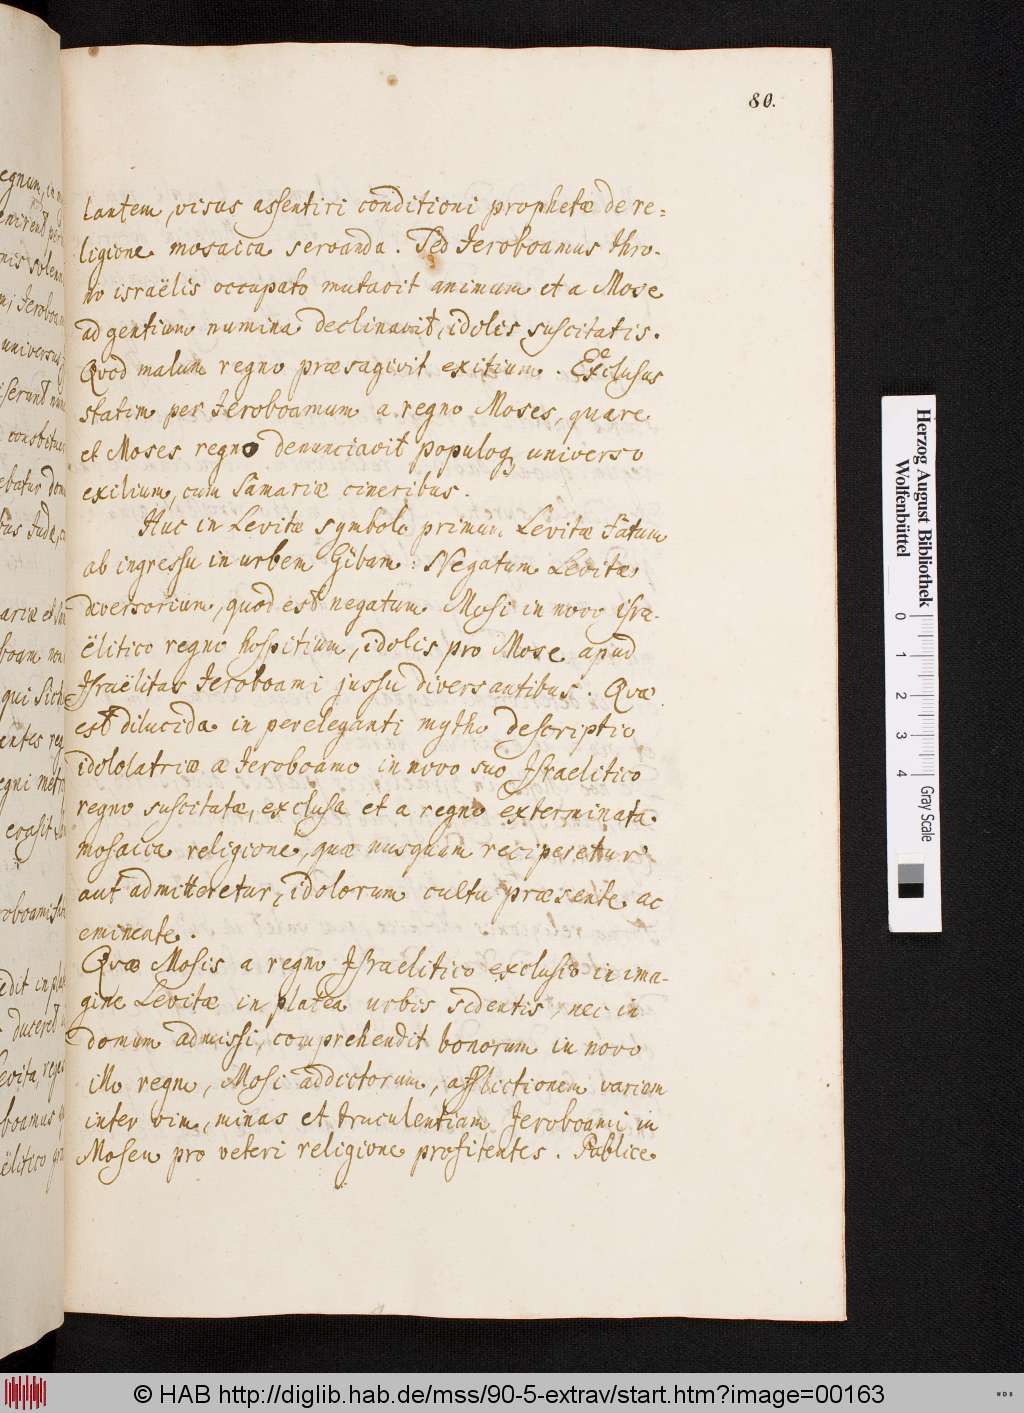 80.
lantem, visus assentiri conditioni prophetæ de re=
ligione mosaica servanda. Sed Jeroboamus thro-
no israëlis occupato mutavit animum et a Mose
ad gentium numina declinavit, idolis suscitatis.
Quod malum regno præsagivit exitium. Exclusus
statim per Jeroboamum a regno Moses, quare
et Moses regno denunciavit populoq universo
exilium, cum Samariæ cineribus.
Huc in Levitæ symbolo primum Levitæ Fatum
ab ingressu in urbem Gibam: Negatum Levitæ
diversorium, quod est negatum Mosi in novo isra-
ëlitico regno hospitium, idolis pro Mose apud
Israëlitas Jeroboami jussu diversantibus. Quæ
est dilucida in pereleganti mytho descriptio
idololatriæ a Jeroboamo in novo suo Israelitico
regno suscitatæ, exclusa et a regno exterminata
mosaica religione, quæ nusquam reciperetur
aut admitteretur, idolorum cultu præsente ac
eminente.
Quæ Mosis a regno Israelitico exclusio in ima-
gine Levitæ in platea urbis sidentis, nec in
domum admissi, comprehendit bonorum in novo
illo regno, Mosi addictorum, afflictionem variam
inter vim, minas et truculentiam Jeroboami in
Mosen pro veteri religione profitentes. Publice
Herzog August Bibliothek
Wolfenbüttel
0 1 2 3 4 Gray Scale
© HAB http://diglib.hab.de/mss/90-5-extrav/start.htm?image=00163